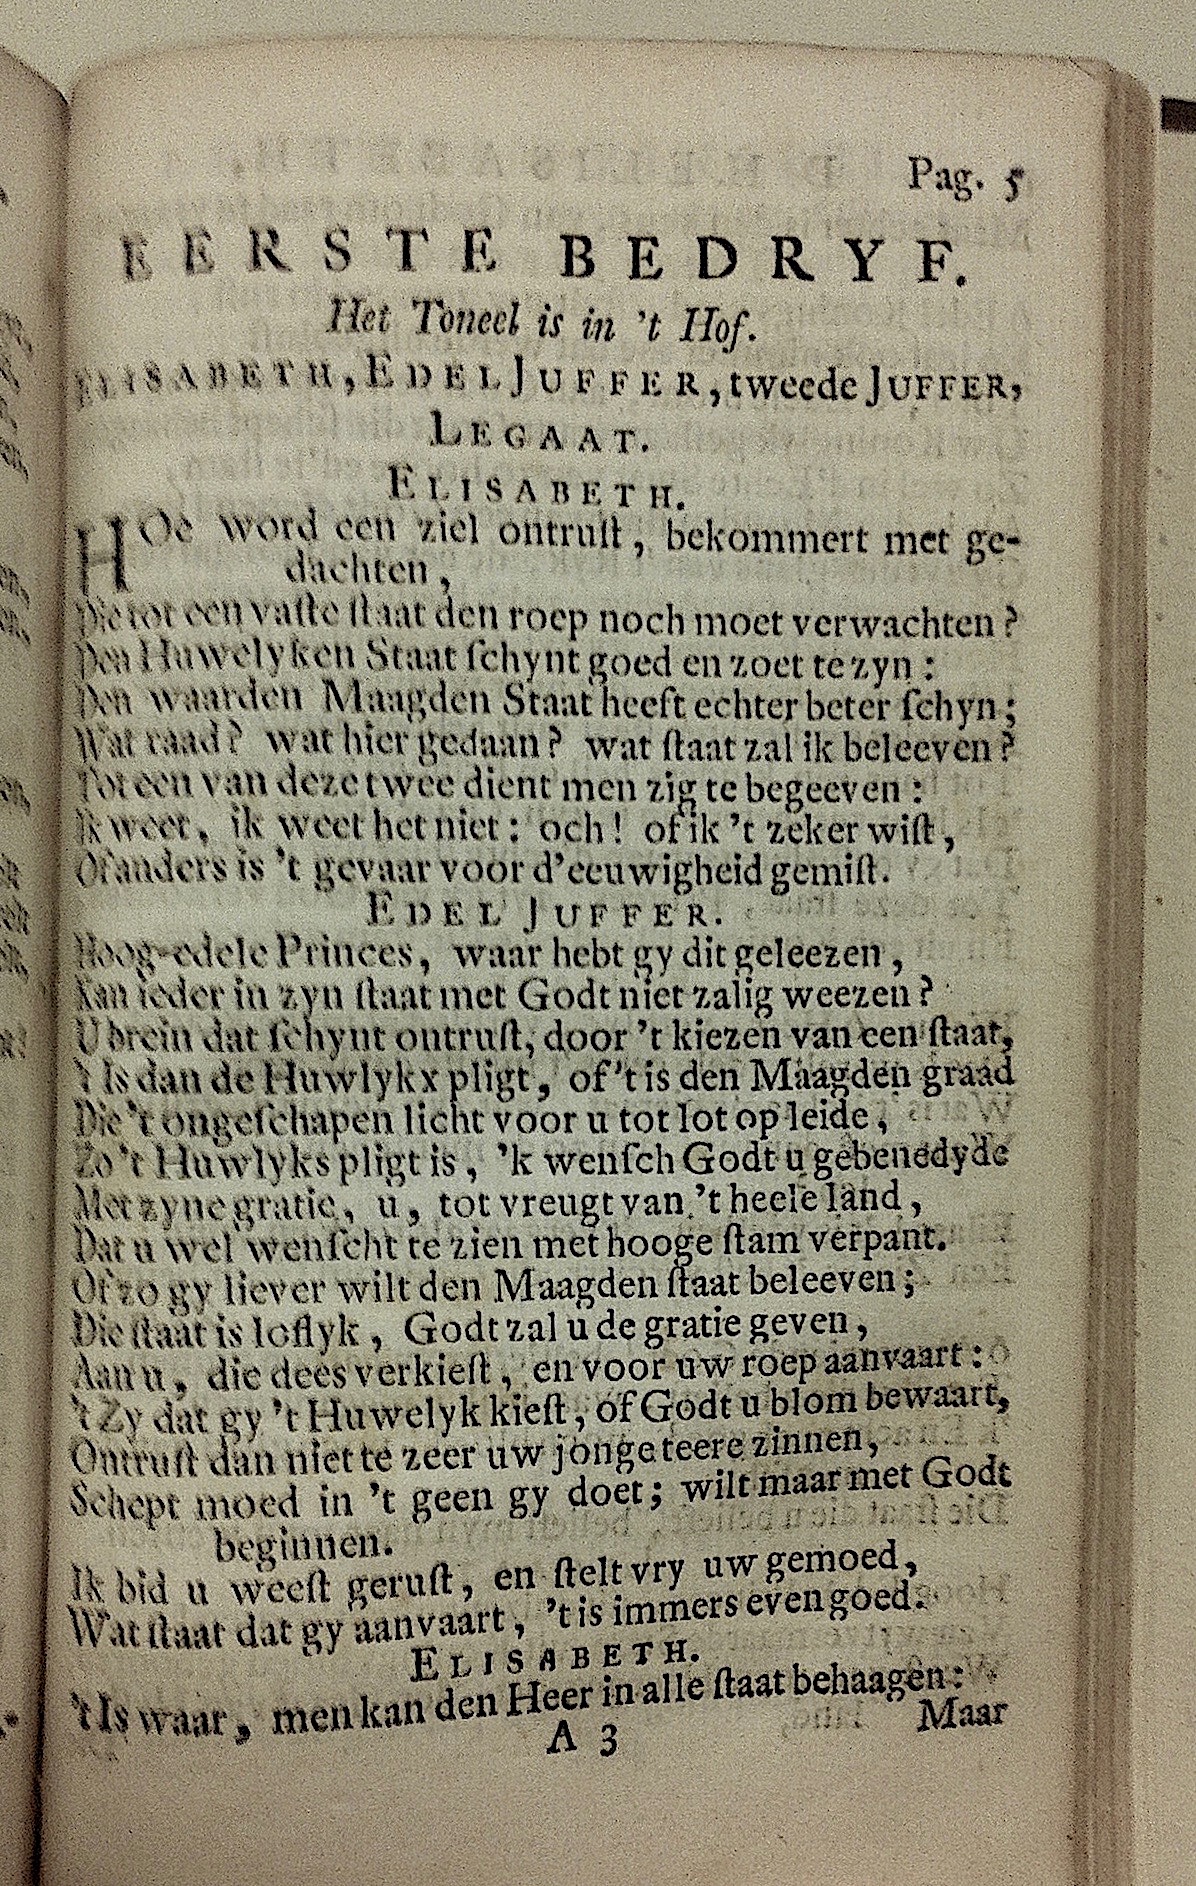 Pag. 5
EERSTE BEDRYF.
Het Toneel is in 't Hof.
ELISABETH, EDEL JUFFER, tweede JUFFER,
LEGAAT.
ELISABETH.
HOe word een ziel ontruſt, bekommert met ge-
dachten,
Die tot een vaſte ſtaat den roep noch moet verwachten?
Den Huwelyken Staat ſchynt goed en zoet te zyn:
Den waarden Maagden Staat heeft echter beter ſchyn;
Wat raad? wat hier gedaan? wat ſtaat zal ik beleeven?
Tot een van deze twee dient men zig te begeeven:
Ik weet, ik weet het niet: och! of ik 't zeker wiſt,
Of anders is 't gevaar voor d'eeuwigheid gemiſt.
EDEL JUFFER.
Hoog-edele Princes, waar hebt gy dit geleezen,
Kan ieder in zyn ſtaat met Godt niet zalig weezen?
U brein dat ſchynt ontruſt, door 't kiezen van een ſtaat,
't Is dan de Huwlykx pligt, of 't is den Maagden graad
Die 't ongeſchapen licht voor u tot lot op leide,
Zo 't Huwlyks pligt is, 'k wenſch Godt u gebenedyde
Met zyne gratie, u, tot vreugt van 't heele land,
Dat u wel wenſcht te zien met hooge ſtam verpant.
Of zo gy liever wilt den Maagden ſtaat beleeven;
Die ſtaat is loflyk, Godt zal u de gratie geven,
Aan u, die dees verkieſt, en voor uw roep aanvaart:
't Zy dat gy 't Huwelyk kieſt, of Godt u blom bewaart,
Ontruſt dan niet te zeer uw jonge teere zinnen,
Schept moed in 't geen gy doet; wilt maar met Godt
beginnen.
Ik bid u weeſt geruſt, en ſtelt vry uw gemoed,
Wat ſtaat dat gy aanvaart, 't is immers even goed.
ELISABETH.
't Is waar, men kan den Heer in alle ſtaat behaagen:
A 3 Maar